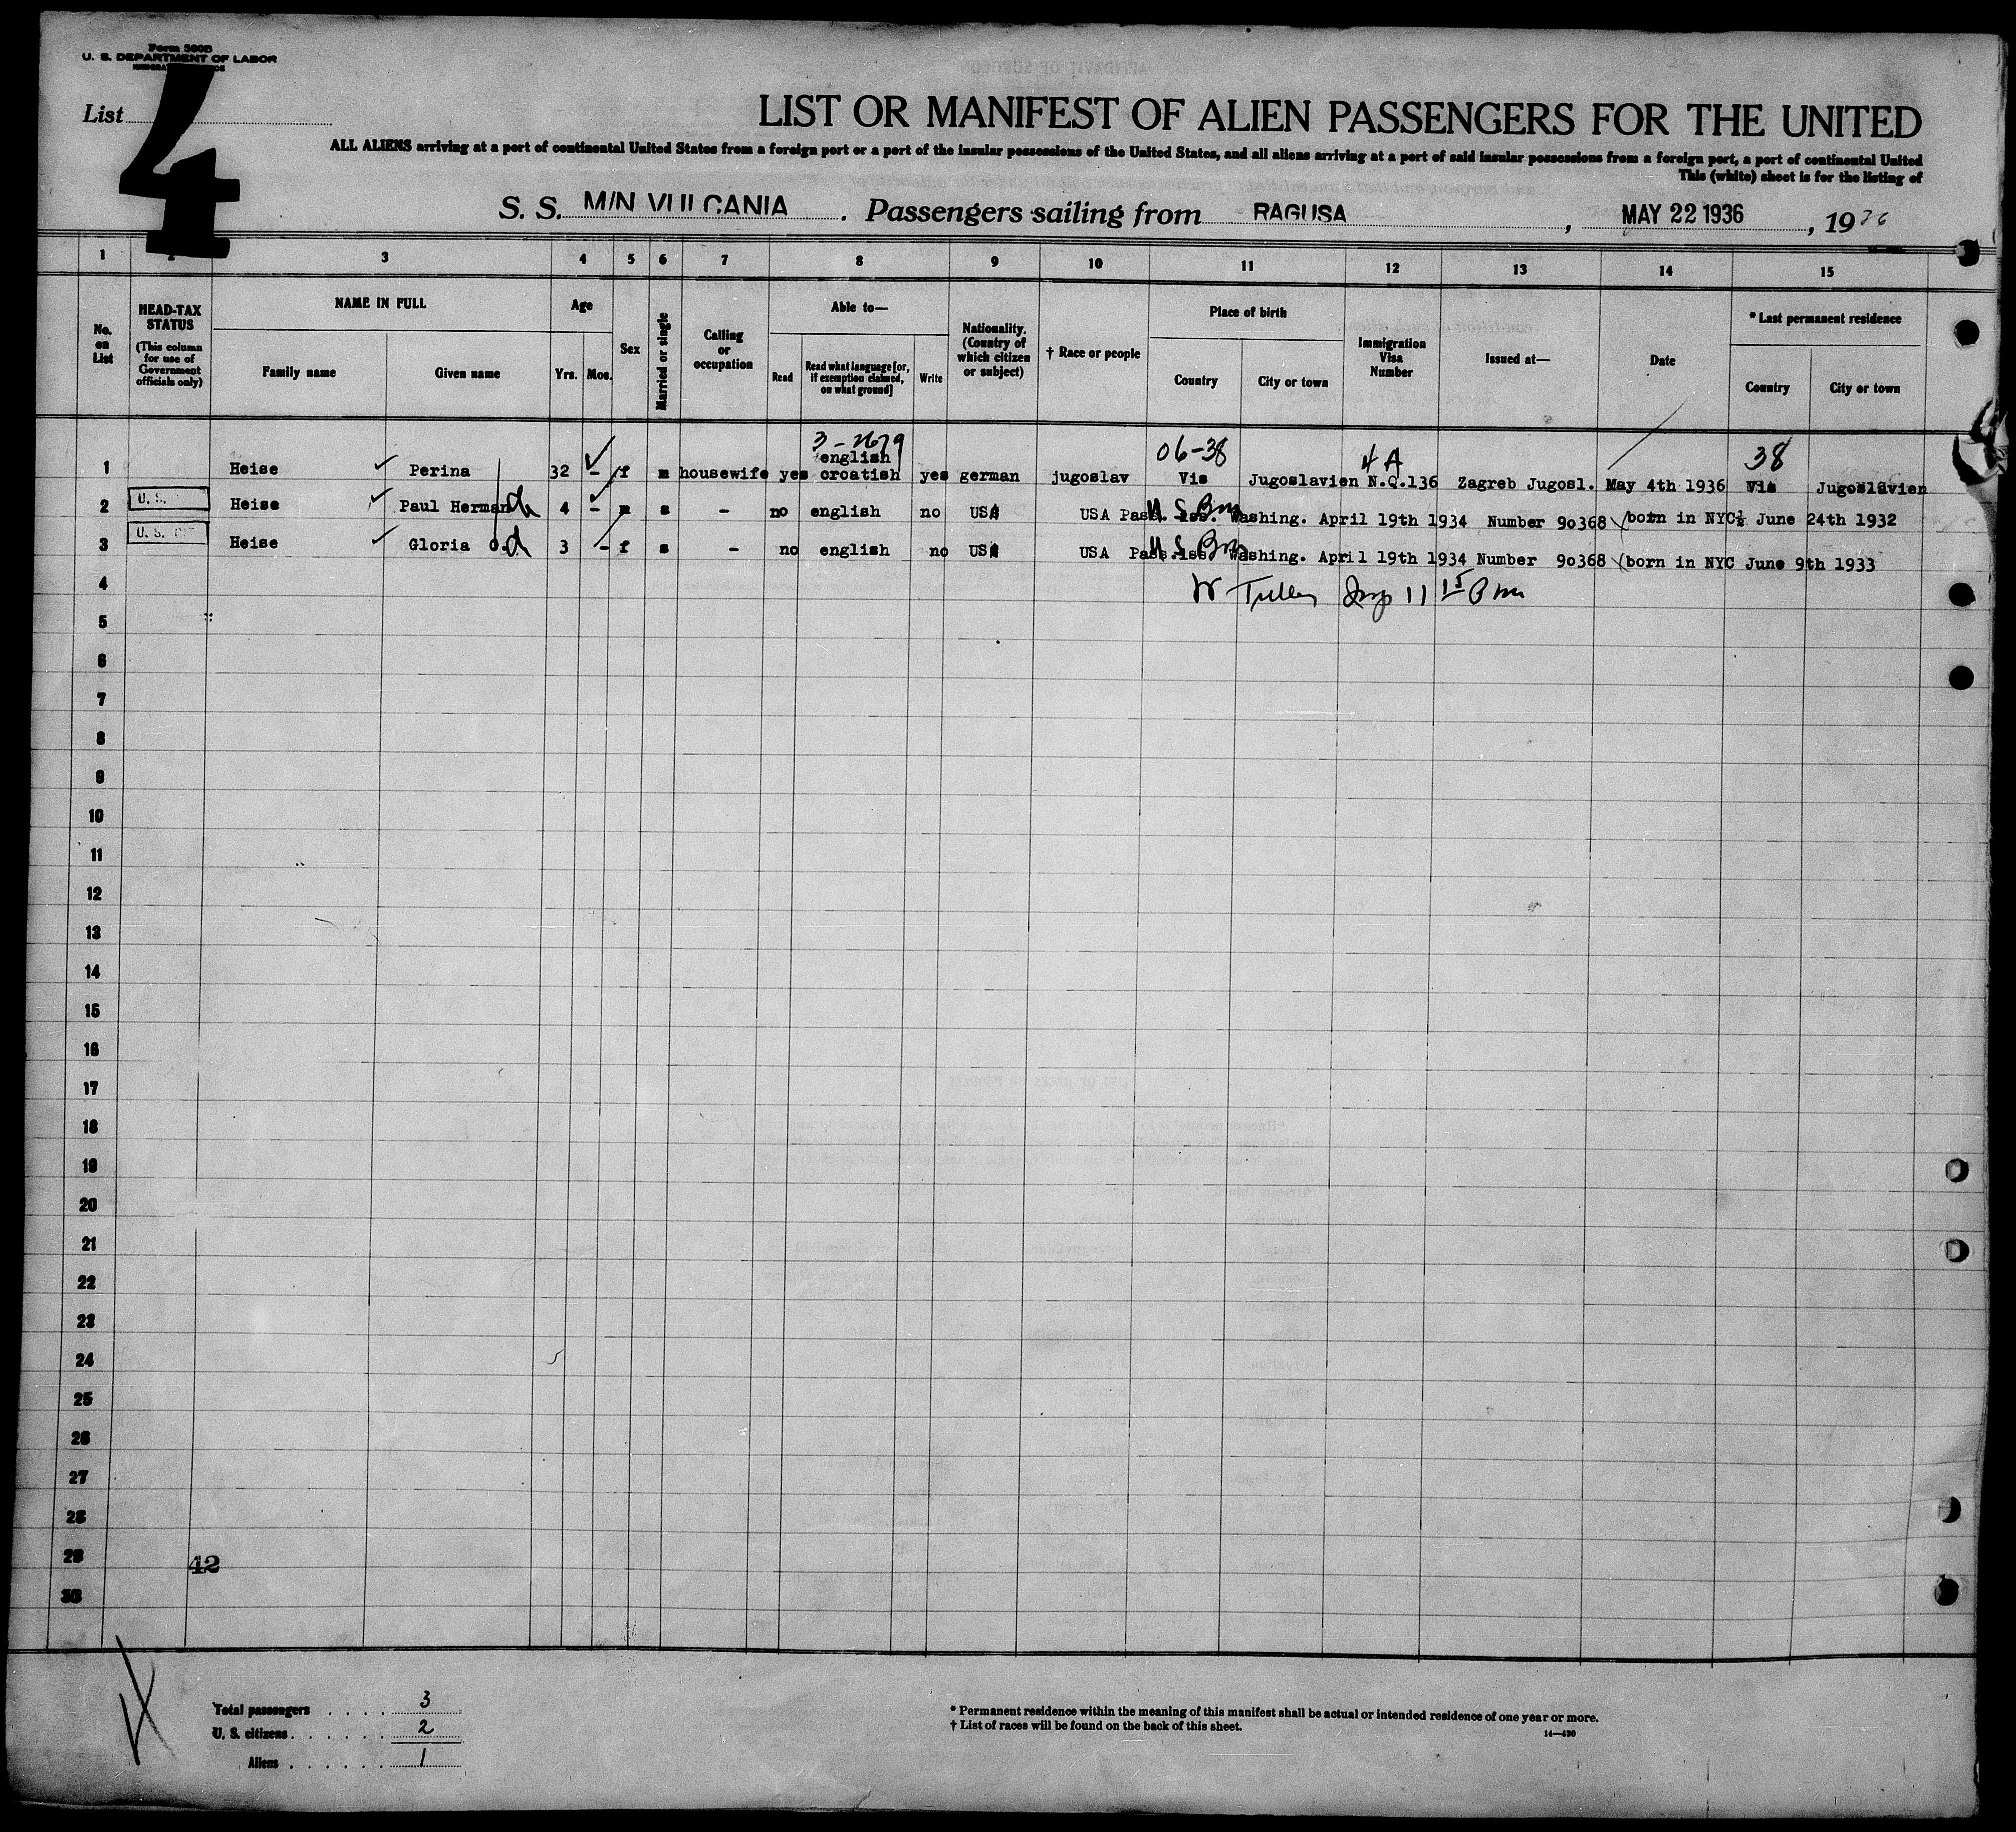 Form 500B
U. S. DEPARTMENT OF LABOR
List 4
LIST OR MANIFEST OF ALIEN PASSENGERS FOR THE UNITED
ALL ALIENS arriving at a port of continental United States from a foreign port or a port of the insular possessions of the United States, and all aliens arriving at a port of said insular possessions from a foreign port, a port of continental United
This (white) sheet is for the listing of
S. S. M/N VULCANIA. Passengers sailing from RAGUSA, MAY 22 1936, 1936
1 3 4 5 6 7 8 9 10 11 12 13 14 15
No. on List
HEAD-TAX STATUS (This column for use of Government officials only)
NAME IN FULL
Family name Given name
Age
Yrs. Mos.
Sex
Married or single
Calling or occupation
Able to—
Read
Read what language [or, if exemption claimed, on what ground]
Write
Nationality. (Country of which citizen or subject)
† Race or people
Place of birth
Country City or town
Immigration Visa Number
Issued at—
Date
* Last permanent residence
Country City or town
3-2679 06-38 4A 38
english
1 Heise Perina 32 - f m housewife yes croatish yes german jugoslav Vis Jugoslavien N.Q.136 Zagreb Jugosl. May 4th 1936 Vis Jugoslavien
2 U. S. Heise Paul Herman 4 - m s - no english no USA USA Pass. iss. Washing. April 19th 1934 Number 90368 (born in NYC June 24th 1932
U S Brn
3 U. S. C Heise Gloria O. 3 - f s - no english no USA USA Pass.iss. Washing. April 19th 1934 Number 90368 (born in NYC June 9th 1933
U S Brn
4
5
6
7
8
9
10
11
12
13
14
15
16
17
18
19
20
21
22
23
24
25
26
27
28
29 42
30
Total passengers . . . . 3
U. S. citizens . . . . . . 2
Aliens . . . . . . 1
* Permanent residence within the meaning of this manifest shall be actual or intended residence of one year or more.
† List of races will be found on the back of this sheet.
14—430